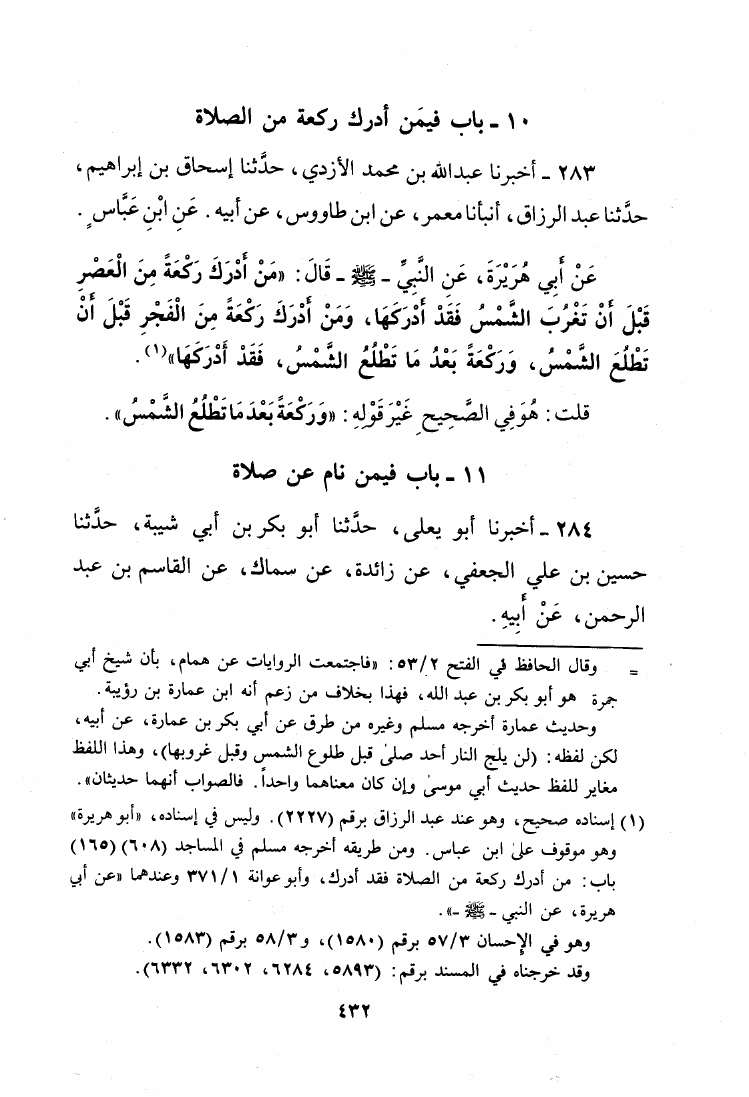 ١٠ - باب فيمَن أدرك ركعة من الصلاة
٢٨٣ - أخبرنا عبدالله بن محمد الأزدي، حدَّثنا إسحاق بن إبراهيم،
حدَّثنا عبد الرزاق، أنبأنا معمر، عن ابن طاووس، عن أبيه. عَنِ ابْنِ عَبَّاسٍ.
عَنْ أَبِي هُرَيْرَةَ، عَنِ النَّبِيِّ - ﷺ - قَالَ: «مَنْ أَدْرَكَ رَكْعَةً مِنَ الْعَصْرِ
قَبْلَ أَنْ تَغْرُبَ الشَّمْسُ فَقَدْ أَدْرَكَهَا، وَمَنْ أَدْرَكَ رَكْعَةً مِنَ الْفَجْرِ قَبْلَ أَنْ
تَطْلُعَ الشَّمْسُ، وَرَكْعَةً بَعْدُ مَا تَطْلُعُ الشَّمْسُ، فَقَدْ أَدْرَكَهَا»(١).
قلت: هُوَ فِي الصَّحِيحِ غَيْرَ قَوْلِهِ: «وَرَكْعَةً بَعْدَ مَا تَطْلُعُ الشَّمْسُ».
١١ - باب فيمن نام عن صلاة
٢٨٤ - أخبرنا أبو يعلى، حدَّثنا أبو بكر بن أبي شيبة، حدَّثنا
حسين بن علي الجعفي، عن زائدة، عن سماك، عن القاسم بن عبد
الرحمن، عَنْ أَبِيهِ.
= وقال الحافظ في الفتح ٥٣/٢: «فاجتمعت الروايات عن همام، بأن شيخ أبي
جمرة هو أبو بكر بن عبد الله، فهذا بخلاف من زعم أنه ابن عمارة بن رؤيبة.
وحديث عمارة أخرجه مسلم وغيره من طرق عن أبي بكر بن عمارة، عن أبيه،
لكن لفظه: (لن يلج النار أحد صلىٰ قبل طلوع الشمس وقبل غروبها)، وهذا اللفظ
مغاير للفظ حديث أبي موسىٰ وإن كان معناهما واحداً. فالصواب أنهما حديثان».
(١) إسناده صحيح، وهو عند عبد الرزاق برقم (٢٢٢٧). وليس في إسناده، «أبو هريرة»
وهو موقوف علىٰ ابن عباس. ومن طريقه أخرجه مسلم في المساجد (٦٠٨) (١٦٥)
باب: من أدرك ركعة من الصلاة فقد أدرك، وأبو عوانة ٣٧١/١ وعندهما «عن أبي
هريرة، عن النبي - ﷺ -».
وهو في الإحسان ٥٧/٣ برقم (١٥٨٠)، و٥٨/٣ برقم (١٥٨٣).
وقد خرجناه في المسند برقم: (٥٨٩٣، ٦٢٨٤، ٦٣٠٢، ٦٣٣٢).
٤٣٢